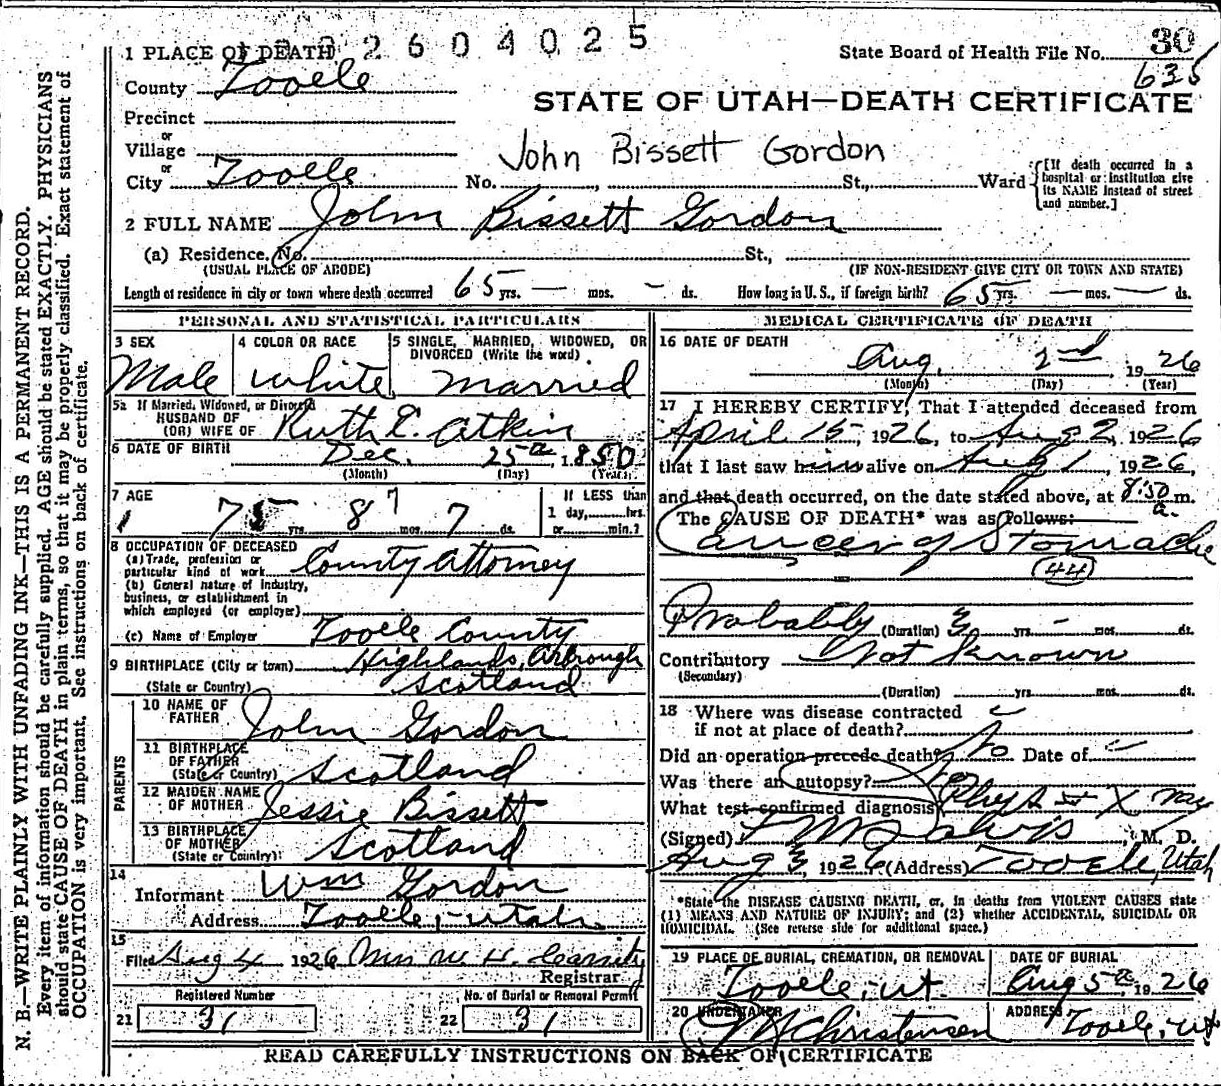 2604025
1 PLACE OF DEATH
State Board of Health File No. 30
635
County Tooele
STATE OF UTAH—DEATH CERTIFICATE
Precinct
or
Village
John Bissett Gordon
or
City Tooele No. , St., Ward [If death occurred in a hospital or institution give its NAME instead of street and number.]
2 FULL NAME John Bissett Gordon
(a) Residence. No. St.,
(USUAL PLACE OF ABODE) (IF NON-RESIDENT GIVE CITY OR TOWN AND STATE)
Length of residence in city or town where death occurred 65 yrs. — mos. - ds. How long in U.S., if foreign birth? 65 yrs. — mos. — ds.
PERSONAL AND STATISTICAL PARTICULARS
3 SEX
Male
4 COLOR OR RACE
White
5 SINGLE, MARRIED, WIDOWED, OR
DIVORCED (Write the word)
Married
5a If Married, Widowed, or Divorced
HUSBAND OF
(OR) WIFE OF Ruth E. Atkin
6 DATE OF BIRTH Dec. 25th, 1850
(Month) (Day) (Year)
7 AGE
75 yrs. 8 7 mos. 7 ds.
If LESS than
1 day, hrs.
or min.?
8 OCCUPATION OF DECEASED
(a) Trade, profession or
particular kind of work County Attorney
(b) General nature of industry,
business, or establishment in
which employed (or employer)
(c) Name of Employer Tooele County
9 BIRTHPLACE (City or town) Highlands, Arbrough
(State or Country) Scotland
PARENTS
10 NAME OF
FATHER John Gordon
11 BIRTHPLACE
OF FATHER
(State or Country) Scotland
12 MAIDEN NAME
OF MOTHER Jessie Bissett
13 BIRTHPLACE
OF MOTHER
(State or Country) Scotland
14
Informant Wm Gordon
Address Tooele, Utah
15
Filed Aug 4 1926 Mrs W. H.
Registrar
Registered Number
No. of Burial or Removal Permit
21 31
22 31
MEDICAL CERTIFICATE OF DEATH
16 DATE OF DEATH
Aug. 2nd, 1926
(Month) (Day) (Year)
17 I HEREBY CERTIFY, That I attended deceased from
April 15, 1926, to Aug 2, 1926
that I last saw him alive on Aug 1, 1926,
and that death occurred, on the date stated above, at 8:50 a. m.
The CAUSE OF DEATH* was as follows:
Cancer of Stomache
(44)
Probably (Duration) 3 yrs. - mos. ds.
Contributory Not Known
(Secondary)
(Duration) yrs. mos. ds.
18 Where was disease contracted
if not at place of death?
Did an operation precede death? No Date of —
Was there an autopsy? No
What test confirmed diagnosis Phys X ray
(Signed) M. D.
Aug 3, 1926 (Address) Tooele, Utah
*State the DISEASE CAUSING DEATH, or, in deaths from VIOLENT CAUSES state
(1) MEANS AND NATURE OF INJURY; and (2) whether ACCIDENTAL, SUICIDAL OR
HOMICIDAL. (See reverse side for additional space.)
19 PLACE OF BURIAL, CREMATION, OR REMOVAL
Tooele, Ut.
DATE OF BURIAL
Aug 5th, 1926
20 UNDERTAKER
Christensen
ADDRESS
Tooele, Ut
READ CAREFULLY INSTRUCTIONS ON BACK OF CERTIFICATE
N. B.—WRITE PLAINLY WITH UNFADING INK—THIS IS A PERMANENT RECORD.
Every item of information should be carefully supplied. AGE should be stated EXACTLY. PHYSICIANS
should state CAUSE OF DEATH in plain terms, so that it may be properly classified. Exact statement of
OCCUPATION is very important. See instructions on back of certificate.